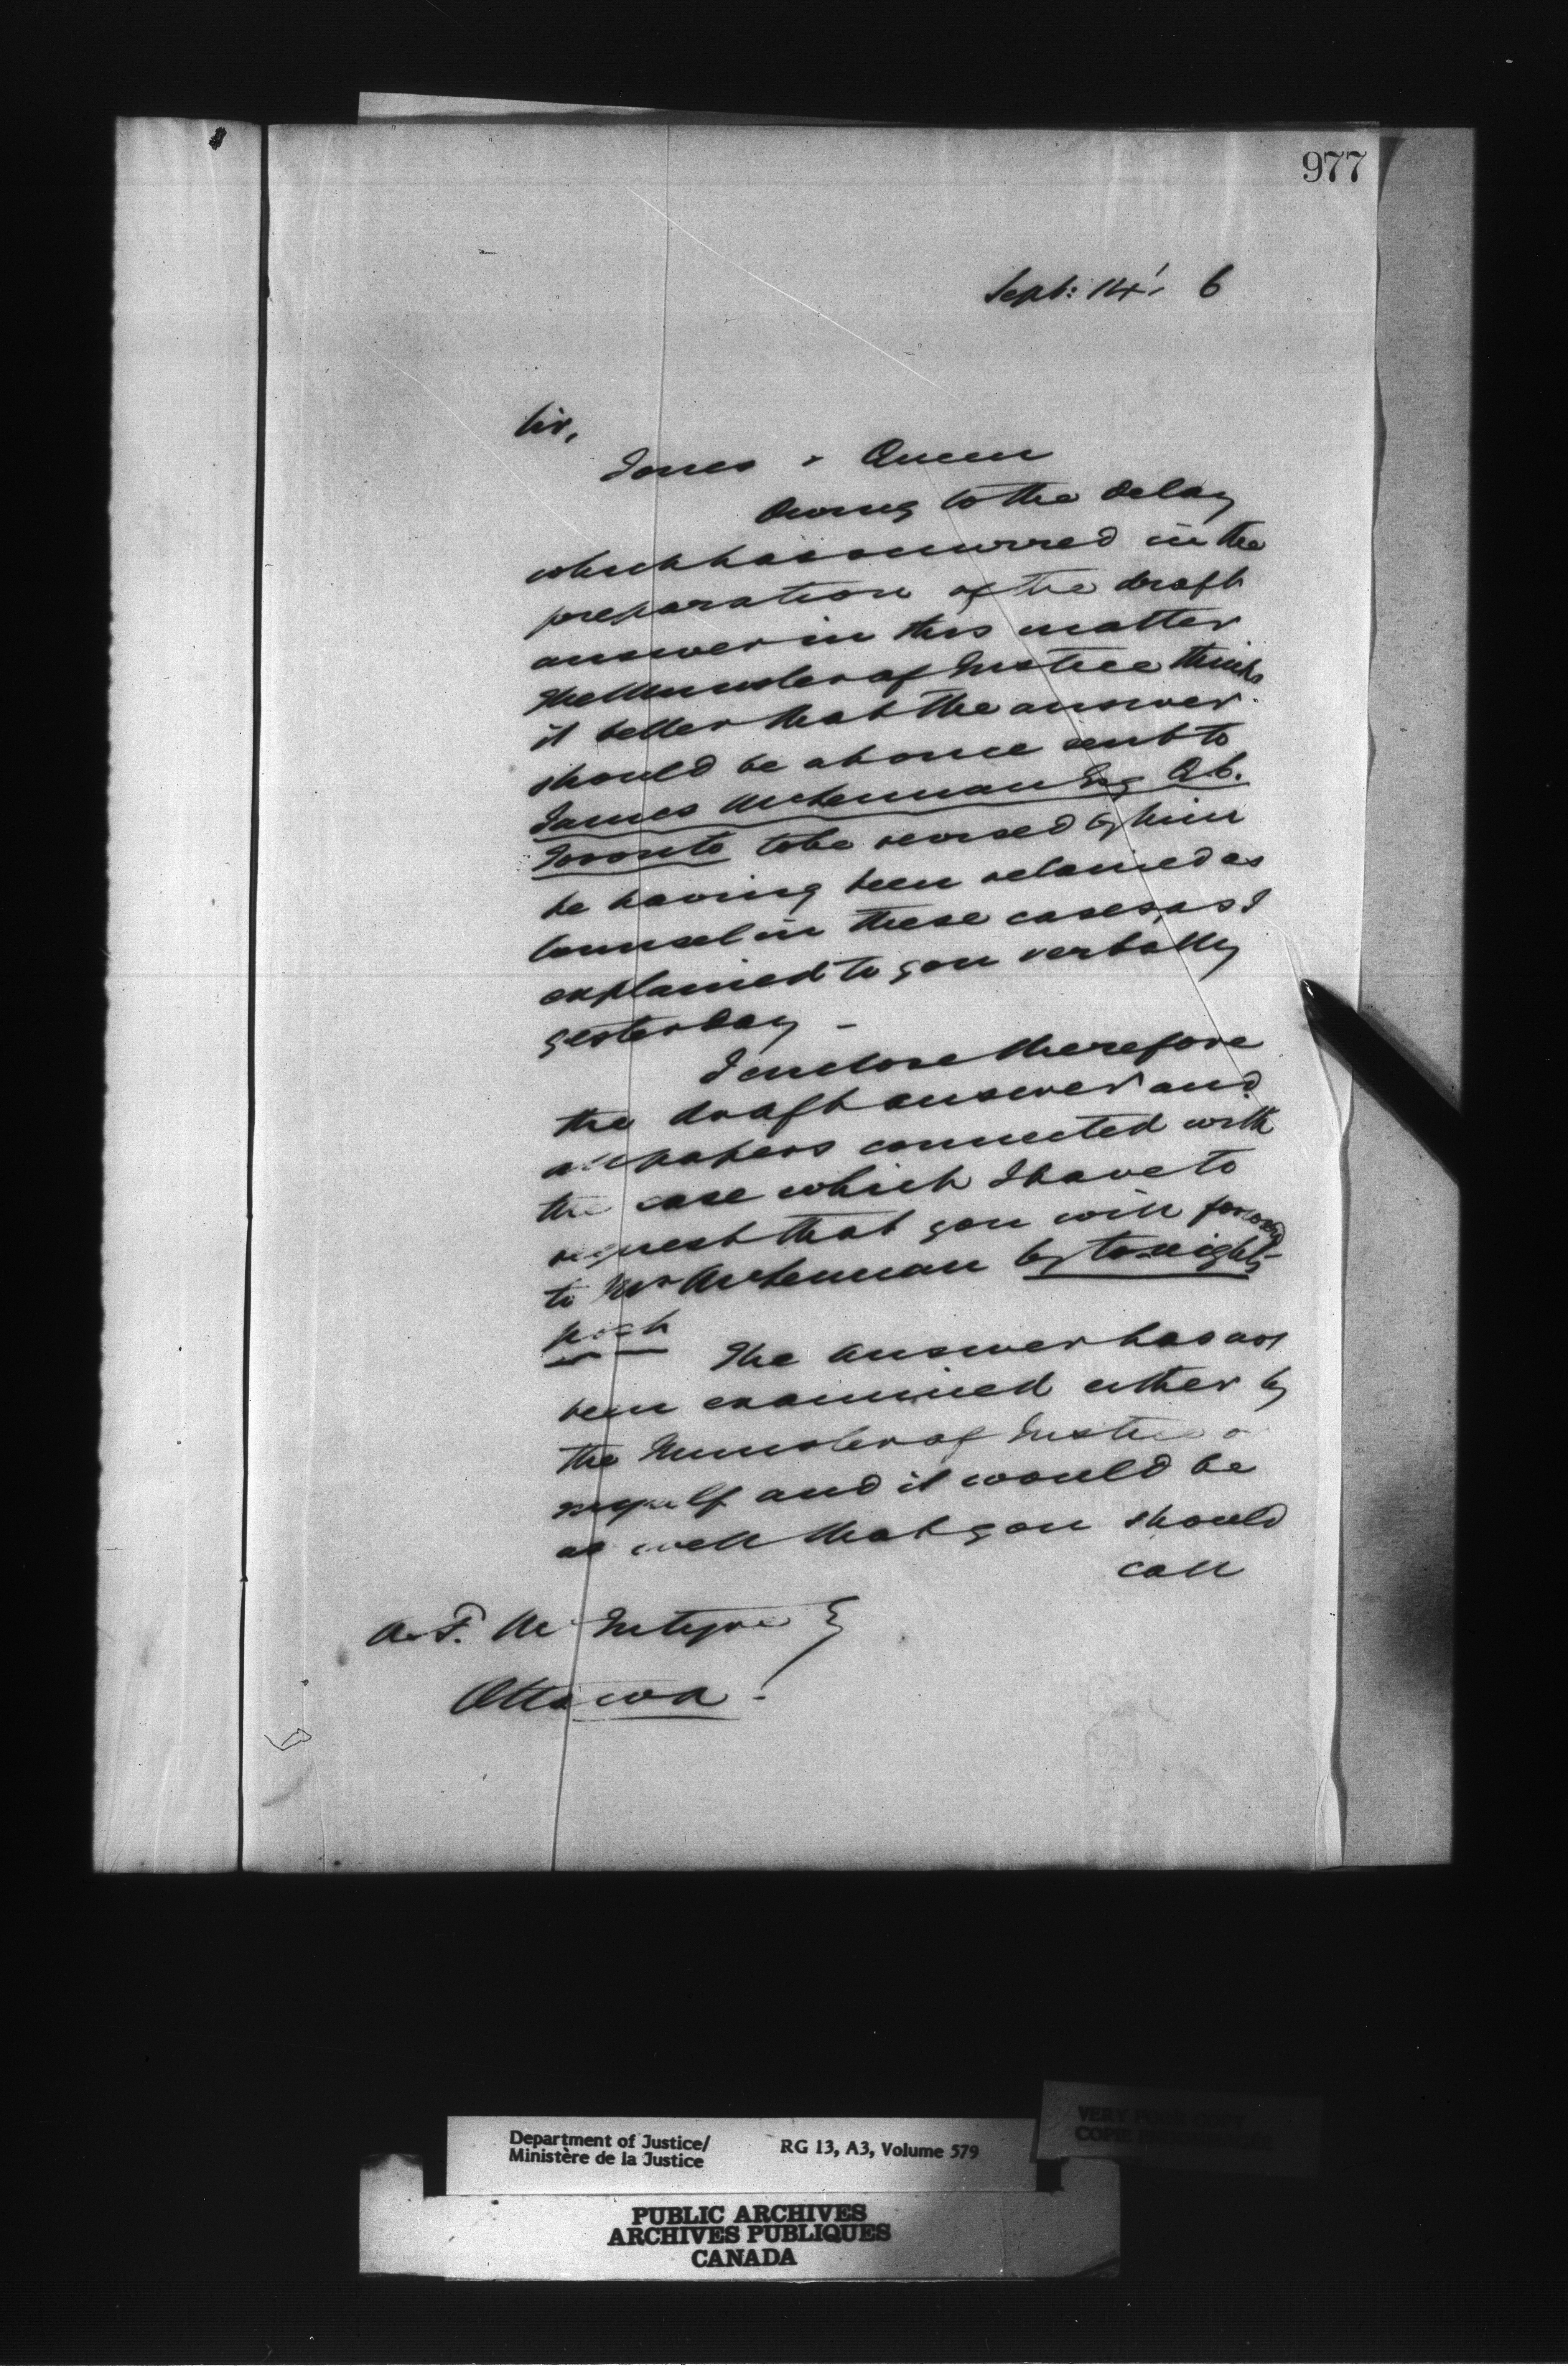 977
Sept: 14', 6
Sir,
Jones v Queen
Owing to the delay
which has occurred in the
preparation of the draft
answer in this matter
the Minister of Justice thinks
it better that the answer
should be at once sent to
James McLennan Esq Q.C.
Toronto to be revised by him
he having been retained as
Counsel in these cases, as I
explained to you verbally
yesterday -
I enclose therefore
the draft answer and
all papers connected with
the case which I have to
request that you will forward
to Mr McLennan by to-night's
post
The answer has not
been examined either by
the Minister of Justice or
myself and it would be
as well that you should
call
A. F. McIntyre }
Ottawa.
Department of Justice/
Ministère de la Justice
RG 13, A3, Volume 579
VERY POOR COPY
PUBLIC ARCHIVES
ARCHIVES PUBLIQUES
CANADA